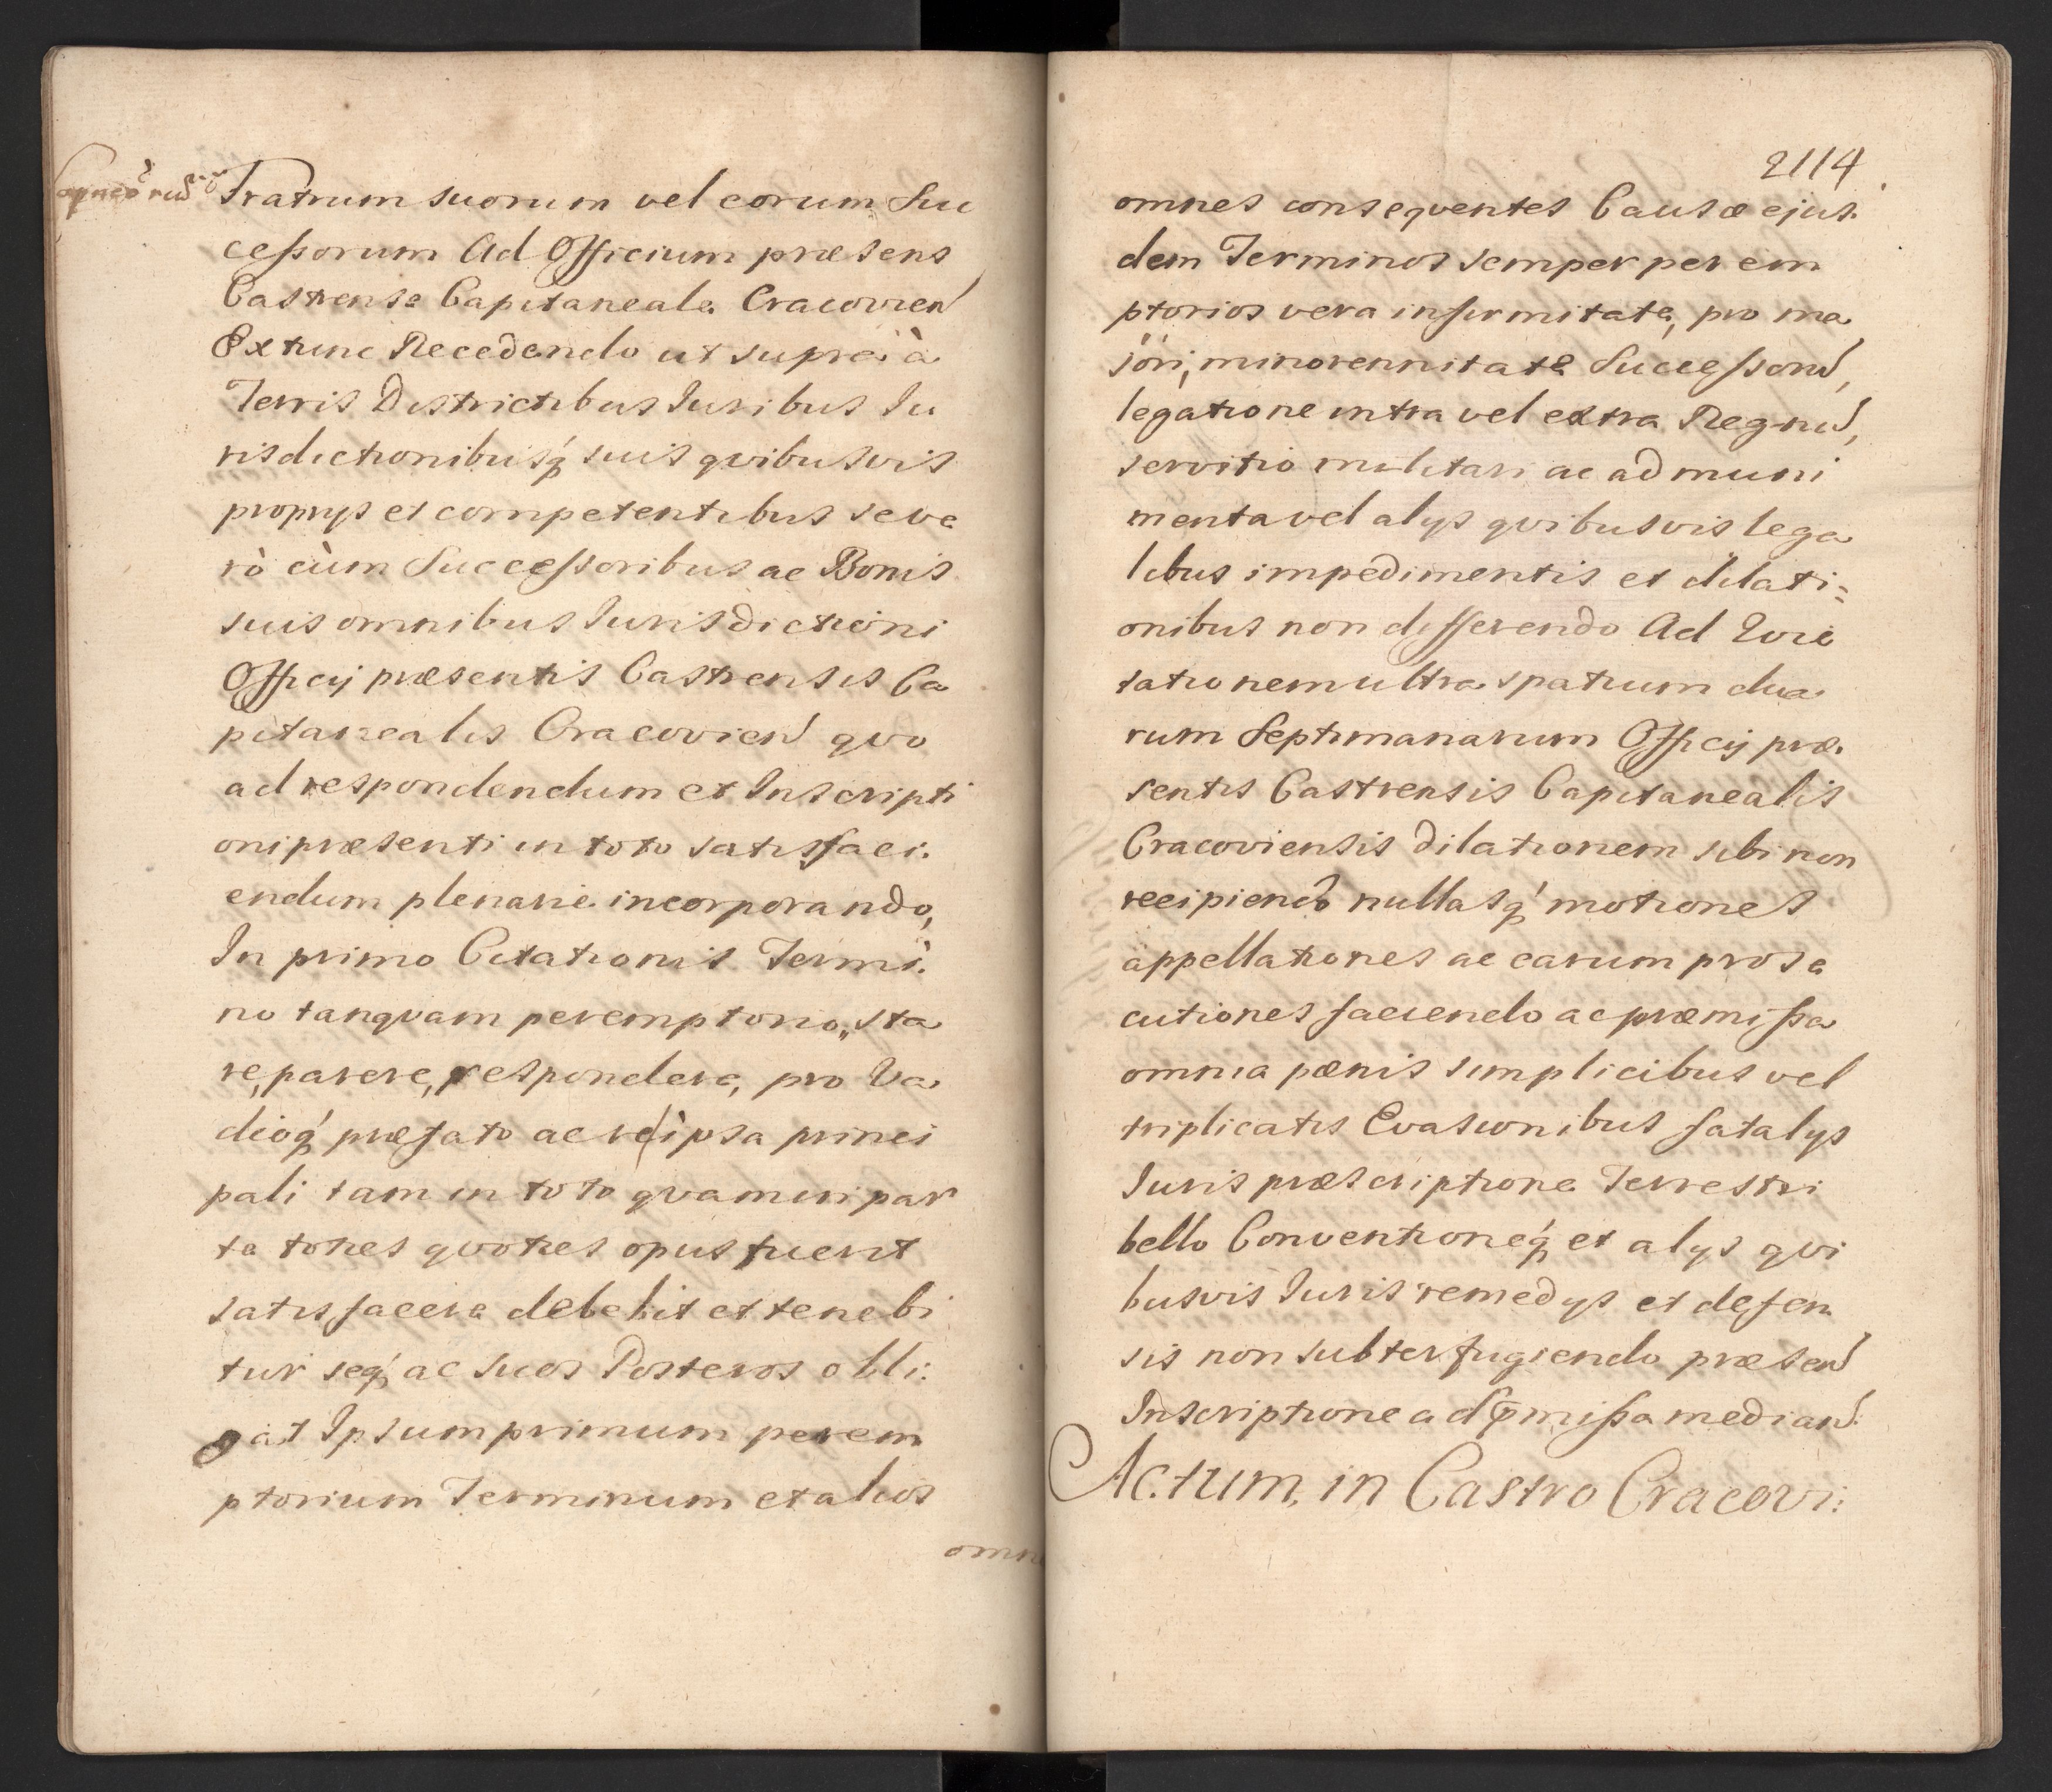 Fratrum suorum vel eorum Suc
cessorum Ad Officium præsens
Castrense Capitaneale Cracovien
Extunc Recedendo ut supra à
Terris Districtibus Iuribus Iu
risdictionibusq́ suis qvibusvis
proprys et competentibus seve
rò cùm Successoribus ac Bonis
suis omnibus Iurisdictioni
Officij præsentis Castrensis Ca
pitanealis Cracovien qvo
ad respondendum et Inscripti
oni præsenti in toto satisfaci:
endum plenarie incorporando,
In primo Citationis Termi:
no tanqvam peremptorio, sta
re, parere, respondere, pro Va
dioq́ præfato ac re ipsa princi
pali tam in toto qvam in par
te toties qvoties opus fuerit
satisfacere debebit et tenebi
tur seq́ ac suos Posteros obli:
gat Ipsum primum perem
ptorium Terminum et alios
omne
2114
omnes conseqventes Causæ ejus
dem Terminos semper perem
ptorios vera infirmitate, pro ma
jori, minorennitate Successorũ,
legatione intra vel extra Regnũ,
servitio militari ac ad muni
menta vel alys qvibusvis lega
libus impedimentis et dilati=
onibus non differendo Ad Evic
tationem ultra spatium dua
rum Septimanarum Officij præ
sentis Castrensis Capitanealis
Cracoviensis dilationem sibi non
recipiendo nullasq́ motiones
appellationes ac earum prose
cutiones faciendo ac præmissa
omnia pænis simplicibus vel
triplicatis Evasionibus fatalys
Iuris præscriptione Terrestri
bello Conventioneq́ et alys qvi
busvis Iuris remedys et defen
sis non subterfugiendo præsen
Inscriptione ad p̃missa median:
Actum, in Castro Cracovi: